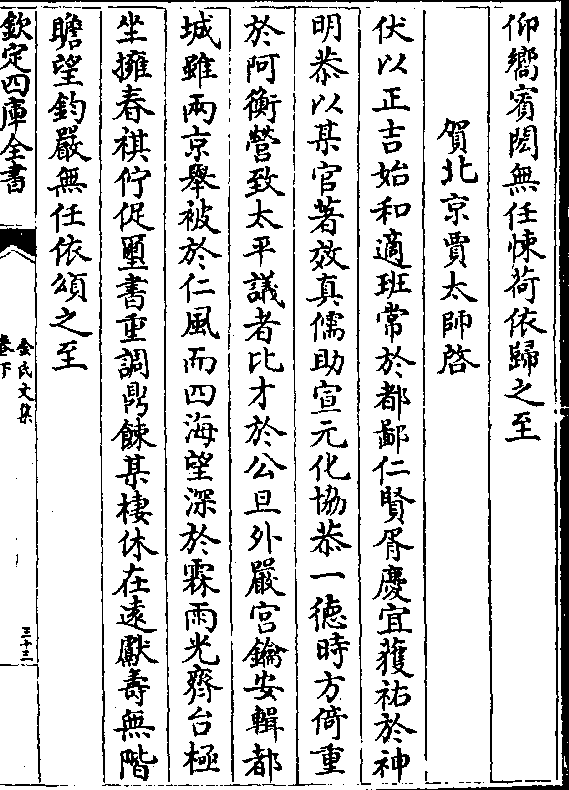 仰嚮賓閎無任悚荷依歸之至
賀北京賈太師啓
伏以正吉始和適班常於都鄙仁賢胥慶宜蒦祐於神
明恭以某官著效真儒助宣元化協恭一德時方倚重
於阿衡營致太平議者比才於公旦外嚴宮鑰安輯都
城雖兩京舉被於仁風而四海望深於霖雨光齊台極
坐擁春祺佇促璽書重調鼎餗某棲休在遠獻壽無階
瞻望鈞嚴無任依頌之至
欽定四庫全書
金氏文集
卷下
三十三